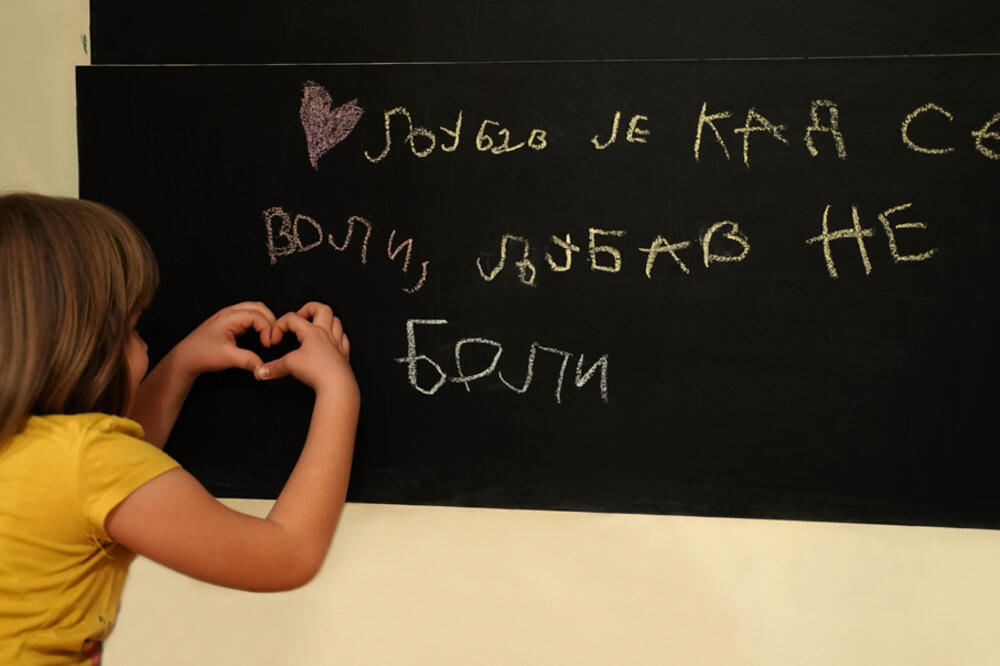 ЉУБАВ ЈЕ КАД СЕ
ВОЛИ, ЉУБАВ НЕ
БОЛИ